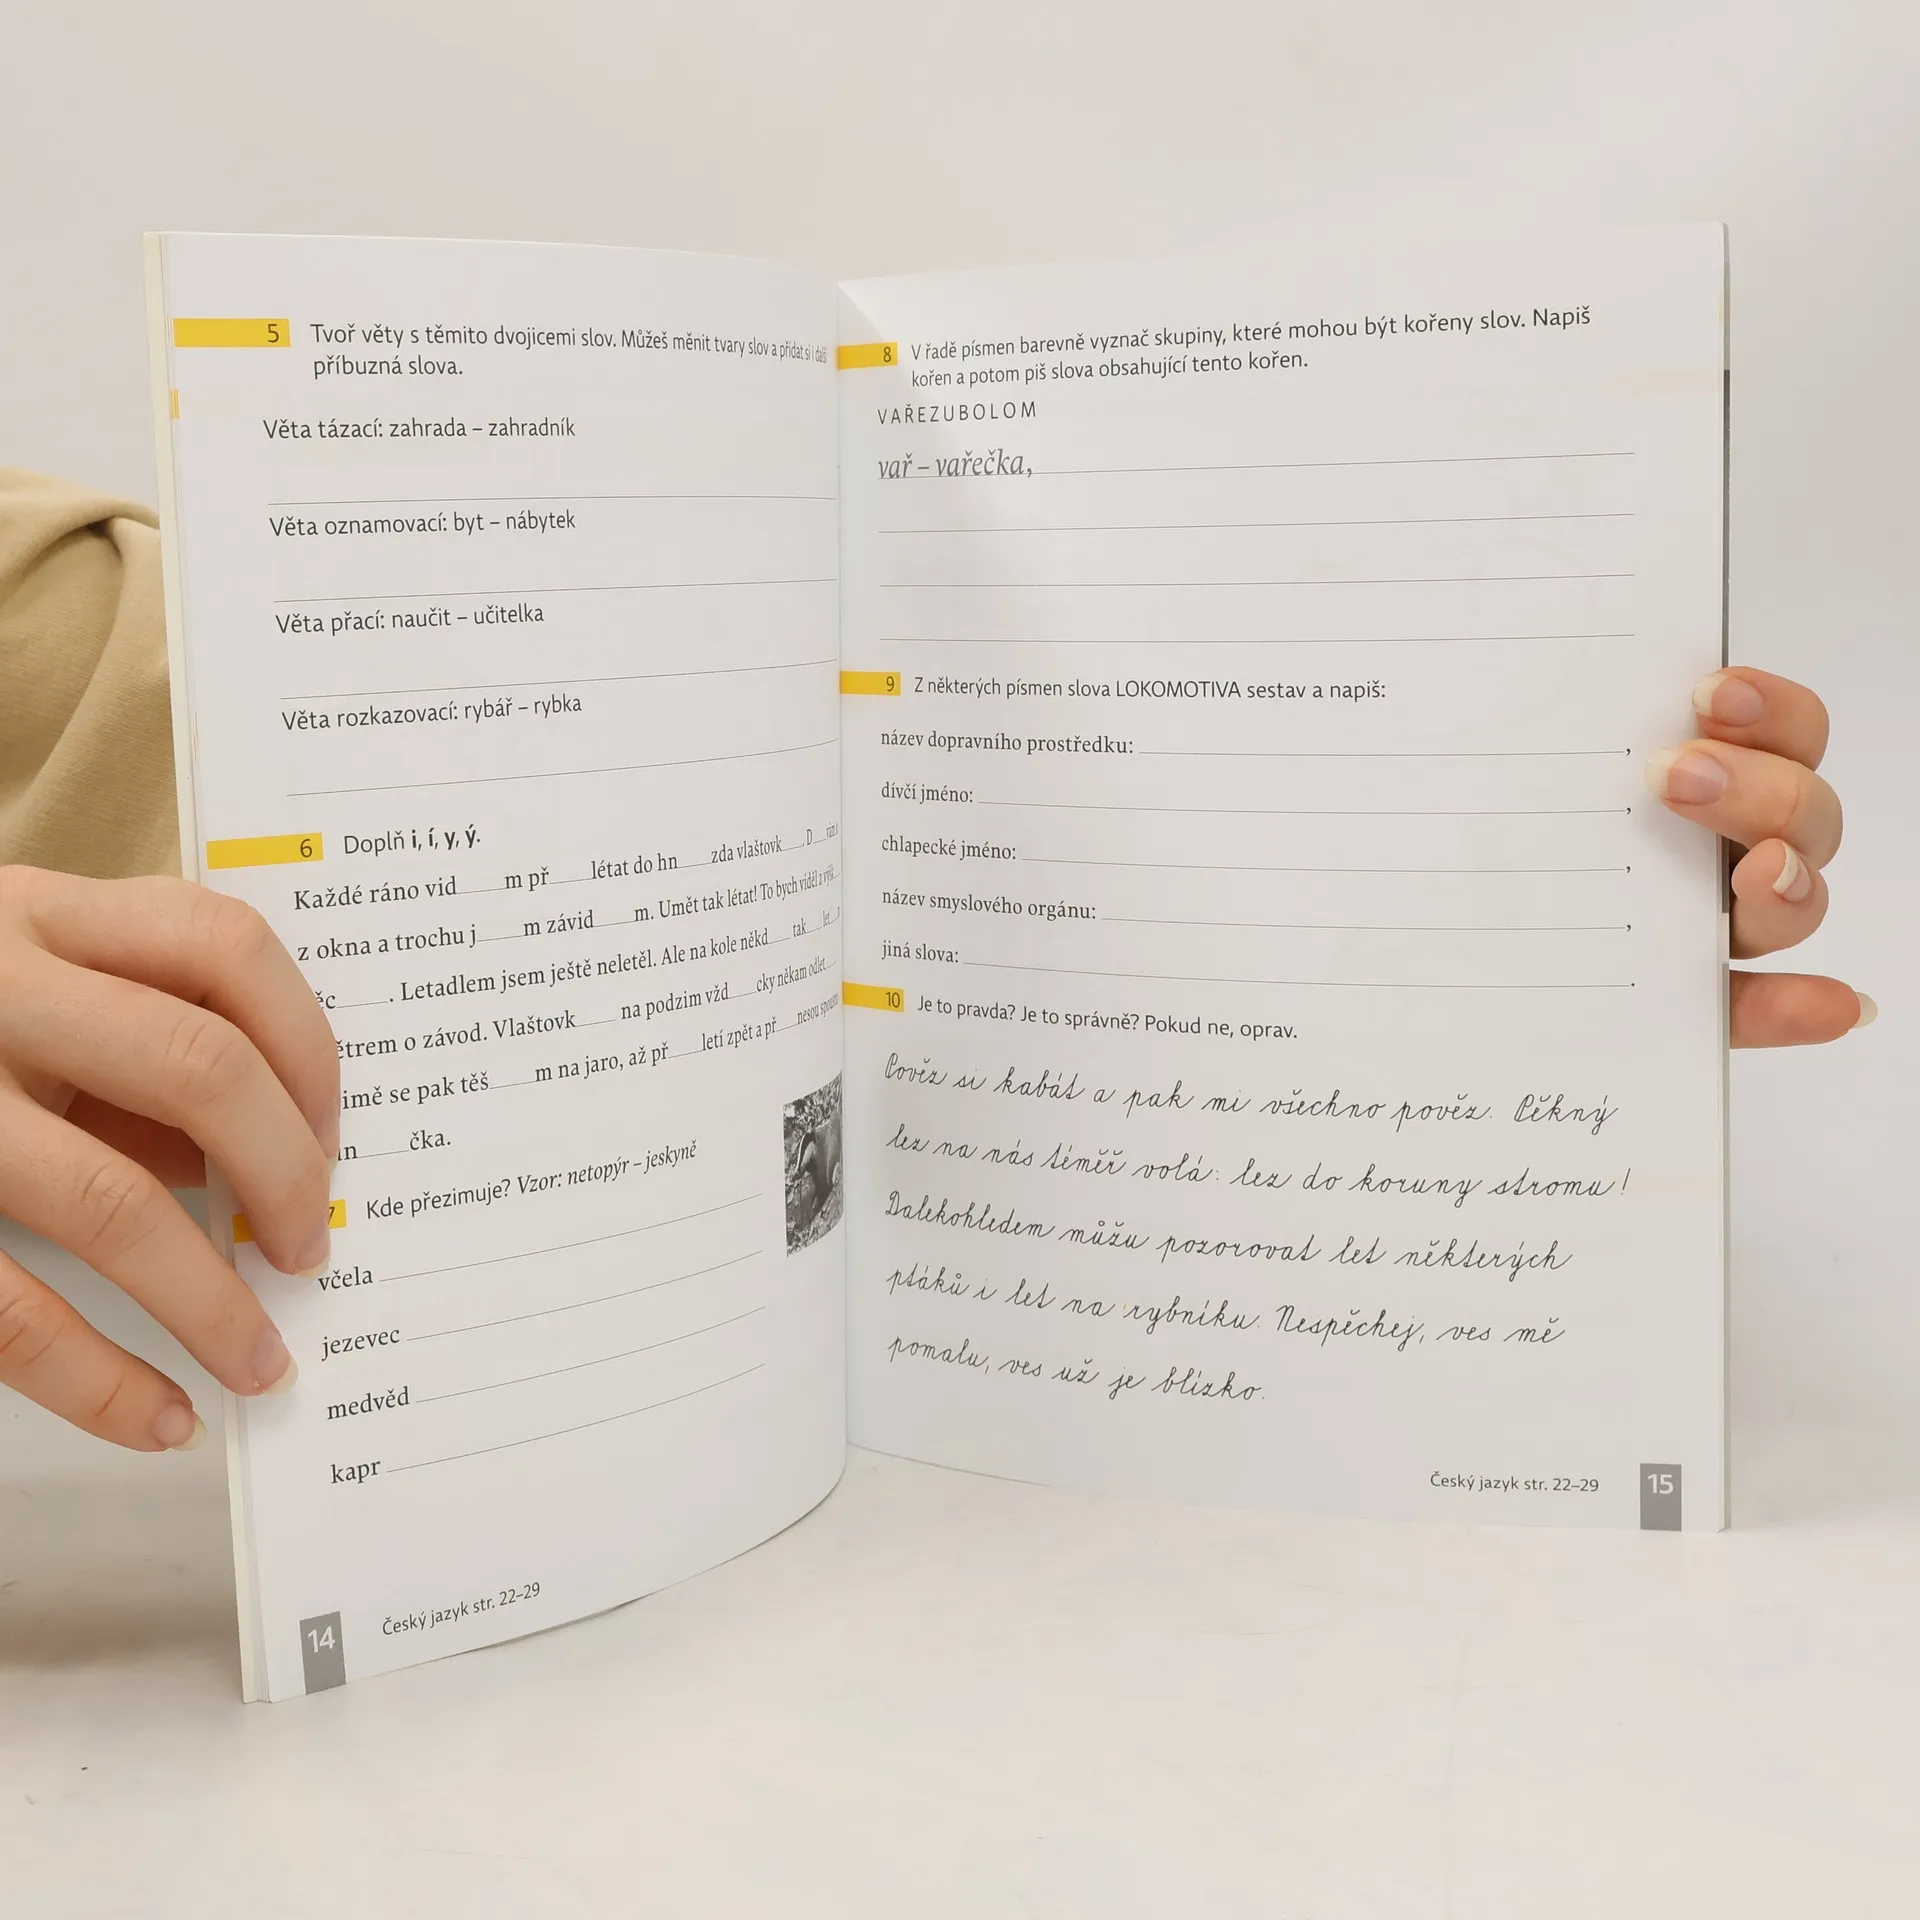 5 Tvoř věty s těmito dvojicemi slov. Můžeš měnit tvary slov a přidat si i další
příbuzná slova.
Věta tázací: zahrada – zahradník
Věta oznamovací: byt – nábytek
Věta přací: naučit – učitelka
Věta rozkazovací: rybář – rybka
6 Doplň i, í, y, ý.
Každé ráno vid____m př____létat do hn____zda vlaštovk____. D____vám
z okna a trochu j____m závid____m. Umět tak létat! To bych viděl z výšk____
ěc____. Letadlem jsem ještě neletěl. Ale na kole někd____ tak____ let____
ětrem o závod. Vlaštovk____ na podzim vžd____cky někam odlet____
imě se pak těš____m na jaro, až př____letí zpět a př____nesou spoustu
n____čka.
7 Kde přezimuje? Vzor: netopýr – jeskyně
včela
jezevec
medvěd
kapr
14 Český jazyk str. 22–29
8 V řadě písmen barevně vyznač skupiny, které mohou být kořeny slov. Napiš
kořen a potom piš slova obsahující tento kořen.
VAŘEZUBOLOM
vař – vařečka,
9 Z některých písmen slova LOKOMOTIVA sestav a napiš:
název dopravního prostředku: ____,
dívčí jméno: ____,
chlapecké jméno: ____,
název smyslového orgánu: ____,
jiná slova: ____.
10 Je to pravda? Je to správně? Pokud ne, oprav.
Pověz si kabát a pak mi všechno pověz. Pěkný
lez na nás téměř volá: lez do koruny stromu!
Dalekohledem můžu pozorovat let některých
ptáků i let na rybníku. Nespěchej, ves mě
pomalu, ves už je blízko.
Český jazyk str. 22–29 15